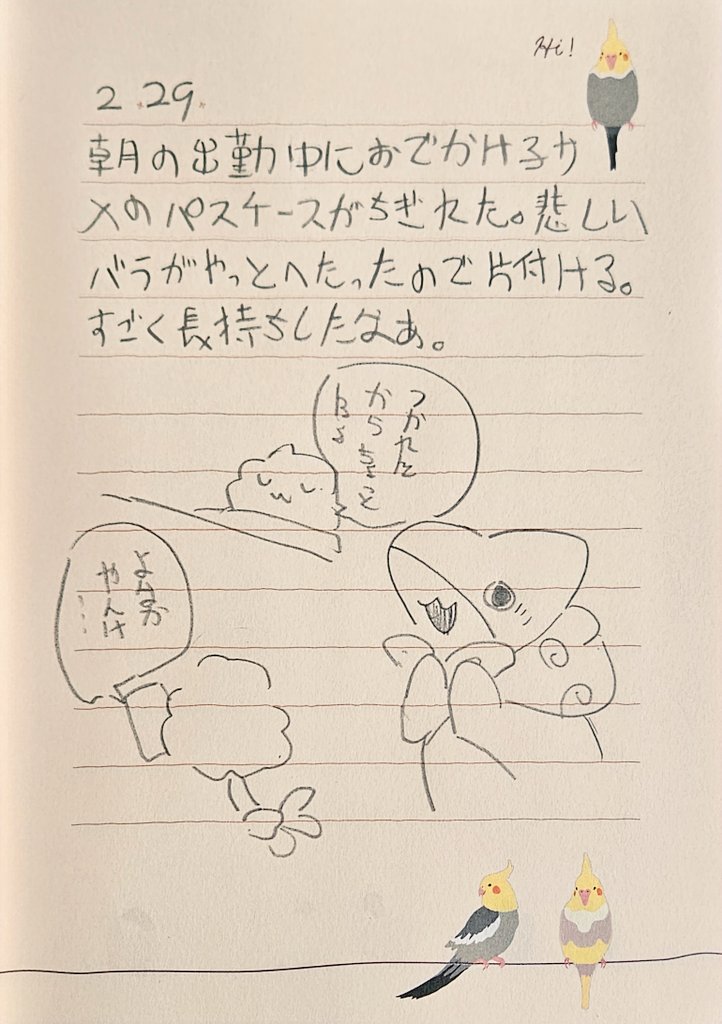 Hi!
2.29.
朝の出勤中におでかけ子サ
メのパスケースがちぎれた。悲しい
バラがやっとへたったので片付ける。
すごく長持ちしたなあ。
つかれた
から ちょっと
やんけ